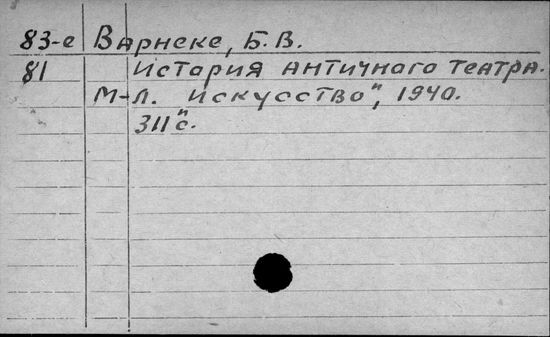 83-е Варнеке, Б. В.
81 История античного театра.
М-Л. искусство", 1940.
311 с.